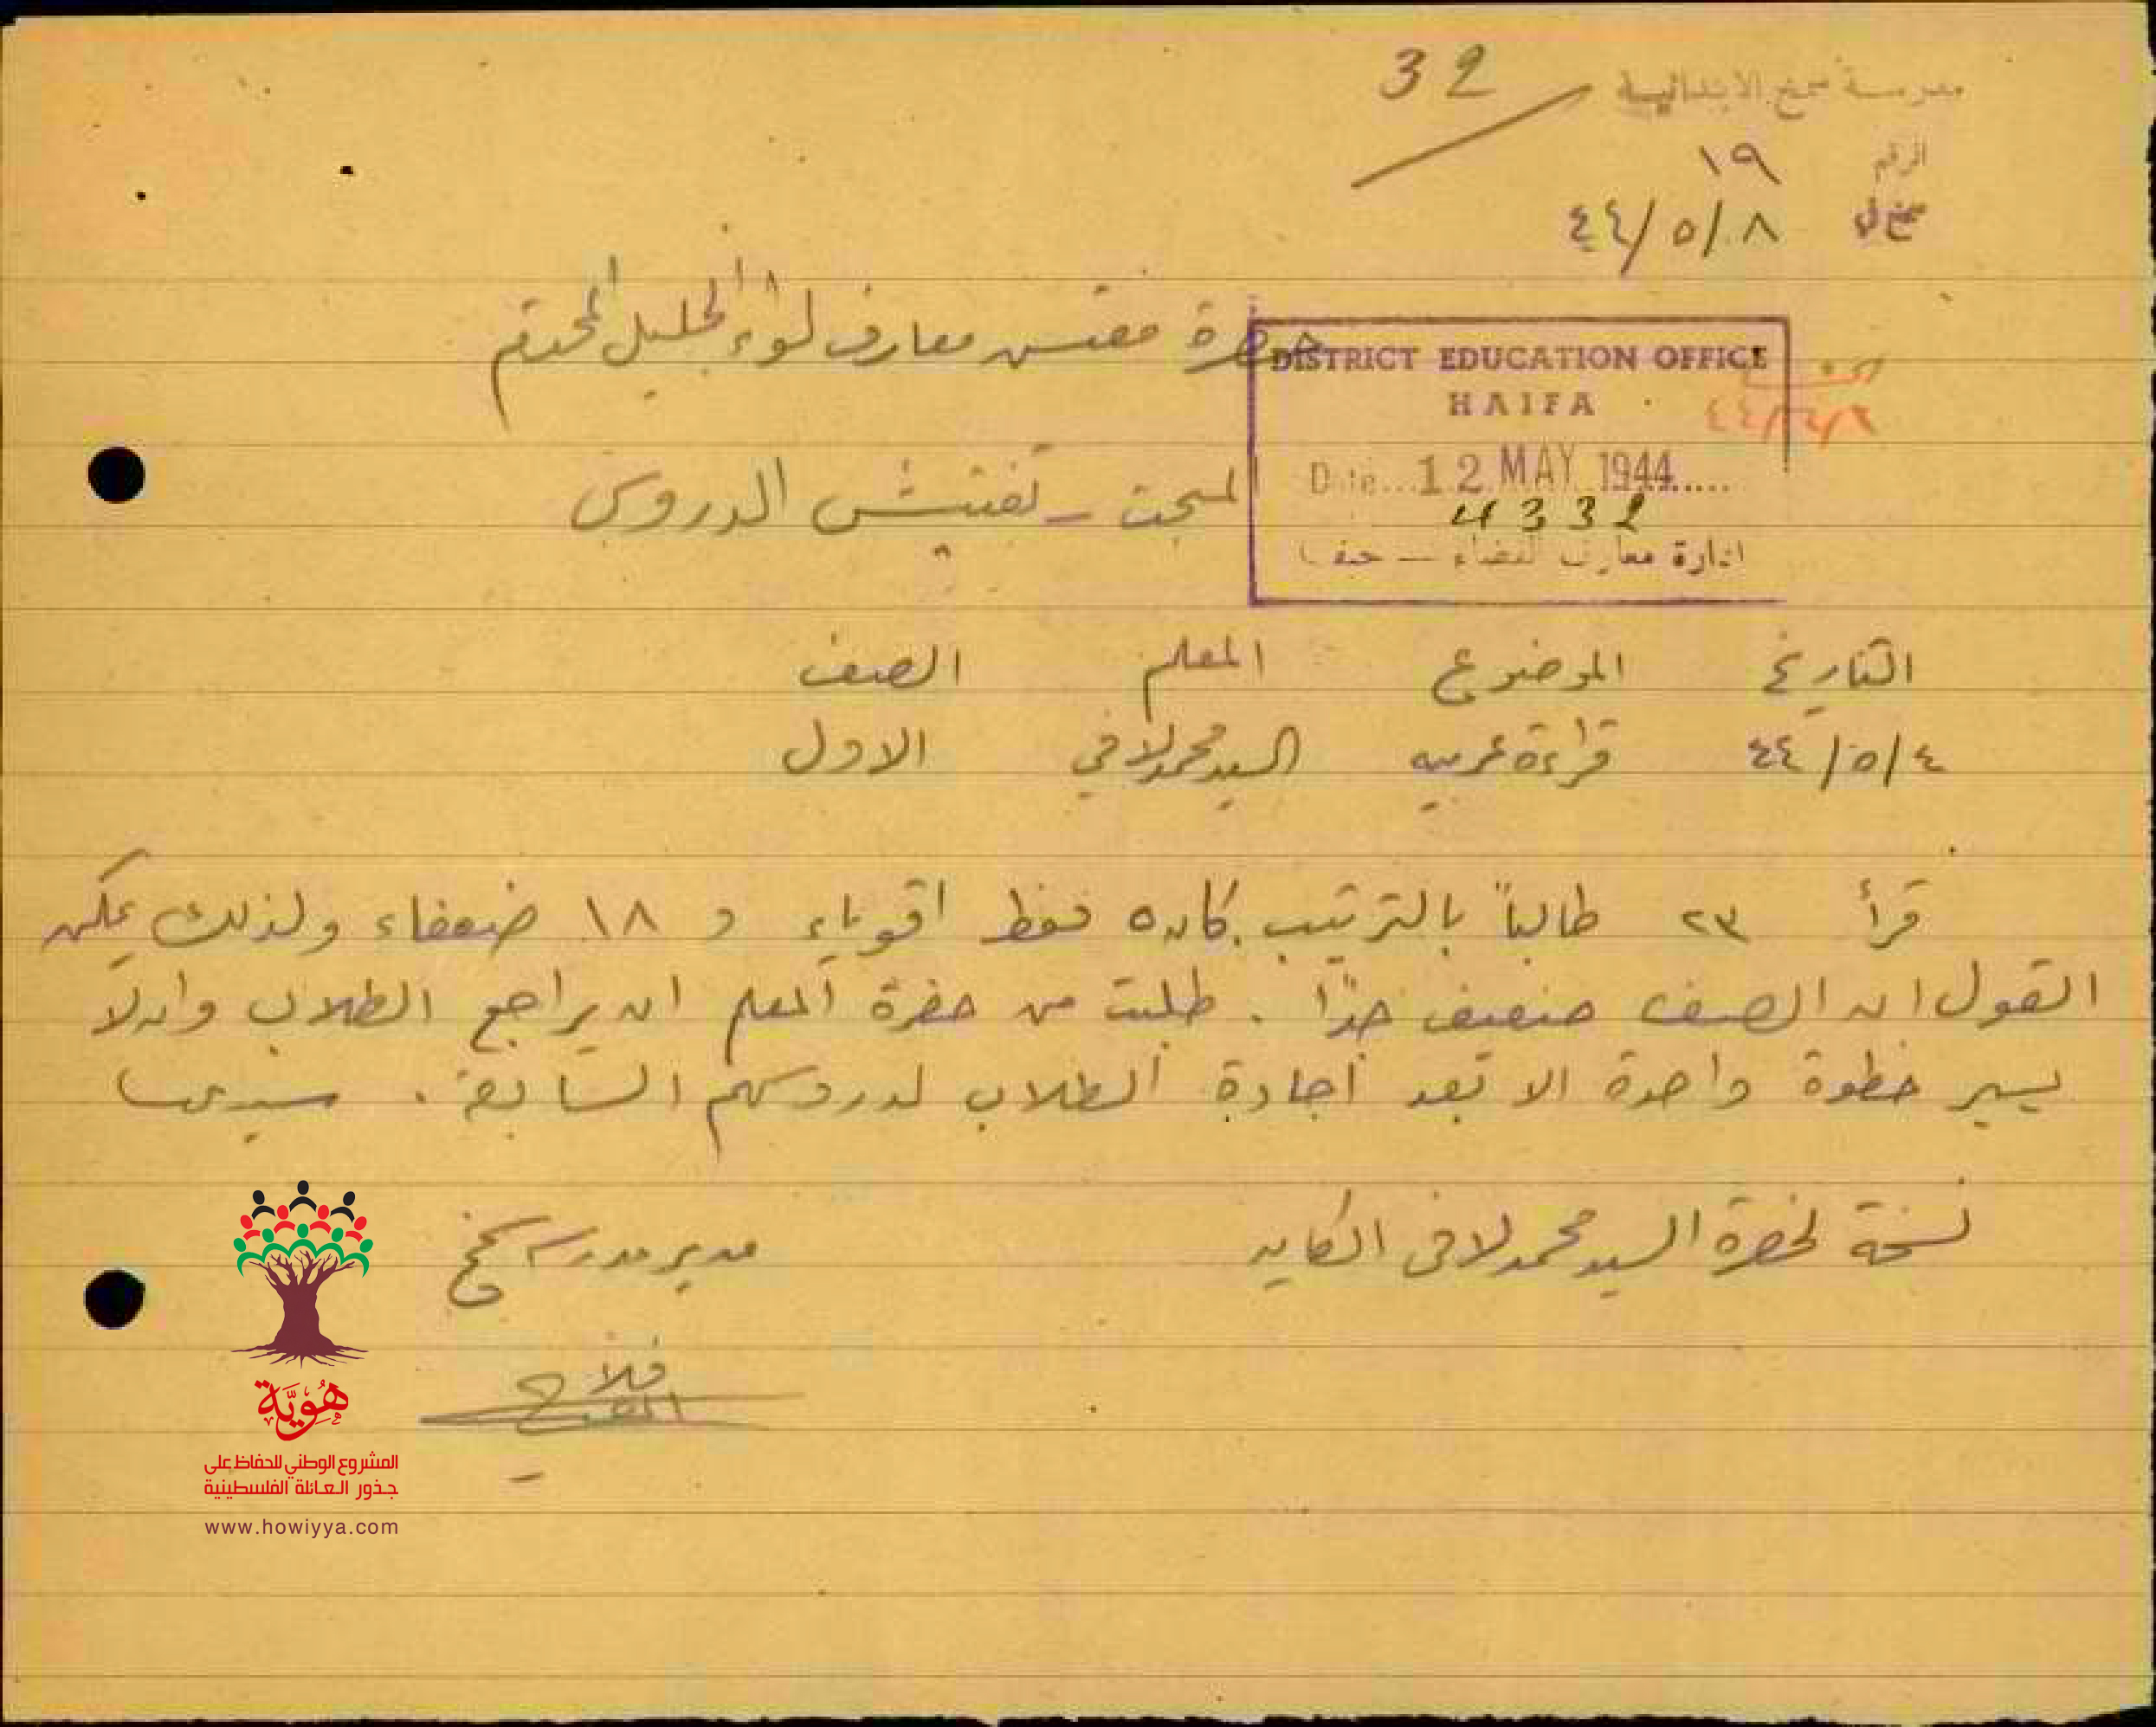 مدرسة سمخ الابتدائية
32
الرقم ١٩
سمخ في ٤٤/٥/٨
حضرة مفتش معارف لواء الجليل المحترم
DISTRICT EDUCATION OFFICE
HAIFA
Date...12 MAY 1944.....
4332
ادارة معارف القضاء — حيفا
المبحث - تفتيش الدروس
التاريخ الموضوع المعلم الصف
٤٤/٥/٤ قراءة عربيه السيد محمد لافي الاول
قرأ ٢٣ طالباً بالترتيب. كان ٥ فقط اقوياء و ١٨ ضعفاء ولذلك يمكن
القول ان الصف ضعيف جداً. طلبت من حضرة المعلم ان يراجع الطلاب وان لا
يسير خطوة واحدة الا بعد اجادة الطلاب لدروسهم السابقة. سيدي
نسخة لحضرة السيد محمد لافي الكايد
مدير مدرسة سمخ
فلاح
هُوِيَّة
المشروع الوطني للحفاظ على
جذور العائلة الفلسطينية
www.howiyya.com